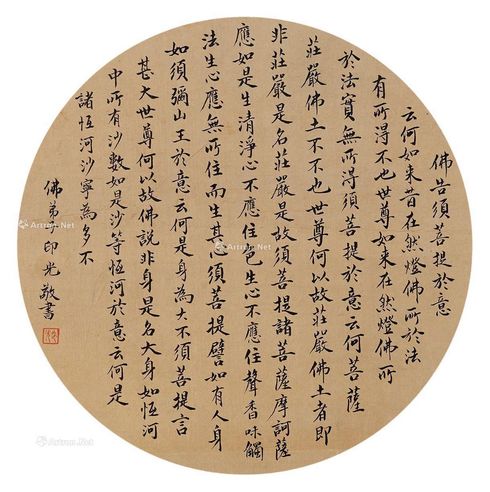 佛告須菩提於意
云何如來昔在然燈佛所於法
有所得不也世尊如來在然燈佛所
於法實無所得須菩提於意云何菩薩
莊嚴佛土不不也世尊何以故莊嚴佛土者即
非莊嚴是名莊嚴是故須菩提諸菩薩摩訶薩
應如是生清淨心不應住色生心不應住聲香味觸
法生心應無所住而生其心須菩提譬如有人身
如須彌山王於意云何是身為大不須菩提言
甚大世尊何以故佛說非身是名大身如恆河
中所有沙數如是沙等恆河於意云何是
諸恆河沙寧為多不
佛弟子印光敬書
Artron.Net
Artron.Net
Artron.Net
Artron.Net